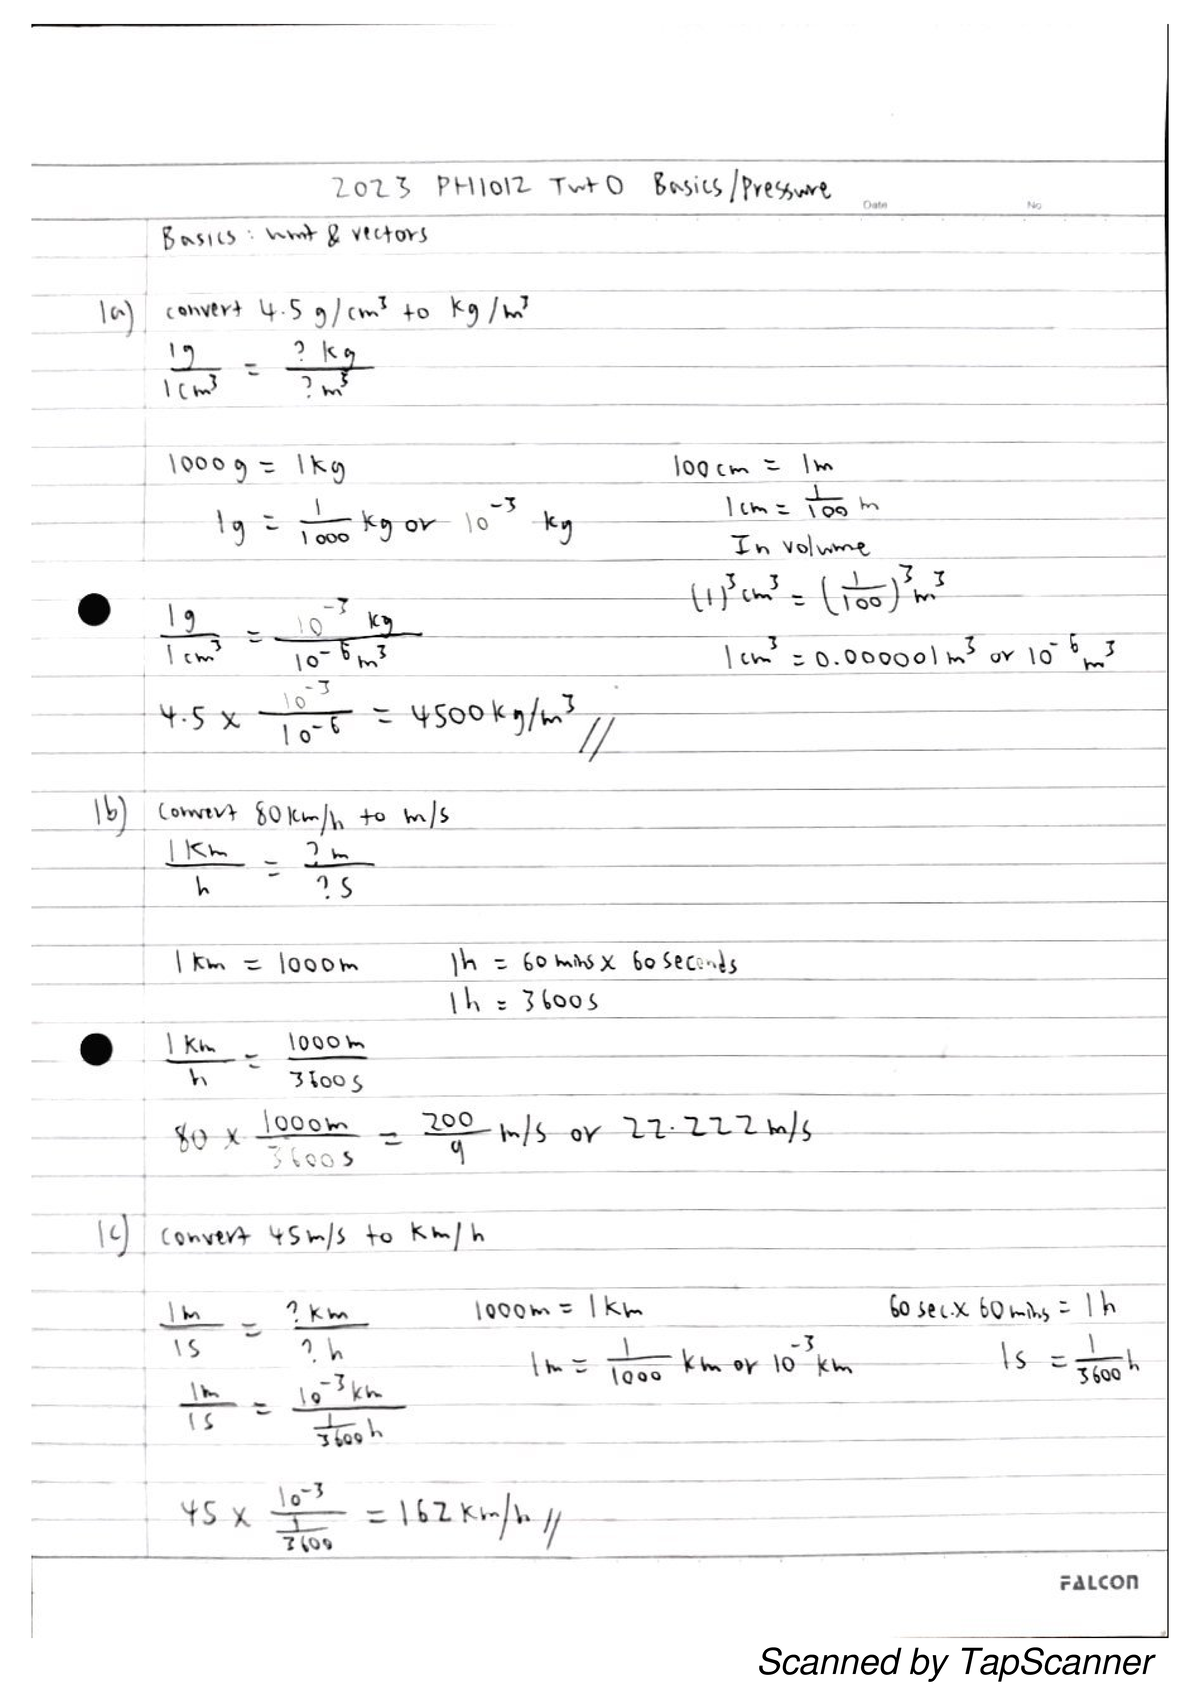 2023 PH1012 Tut 0 Basics/Pressure
Date No
Basics: unit & vectors
1a) convert 4.5 g/cm³ to kg/m³
1g / 1cm³ = ? kg / ? m³
1000g = 1kg 100cm = 1m
1g = 1/1000 kg or 10⁻³ kg 1cm = 1/100 m
In volume
(1)³cm³ = (1/100)³m³
1g / 1cm³ = 10⁻³ kg / 10⁻⁶m³ 1cm³ = 0.000001m³ or 10⁻⁶m³
4.5 × 10⁻³ / 10⁻⁶ = 4500kg/m³ //
1b) convert 80km/h to m/s
1km / h = ?m / ?s
1km = 1000m 1h = 60mins × 60seconds
1h = 3600s
1km / h = 1000m / 3600s
80 × 1000m / 3600s = 200/9 m/s or 22.222m/s
1c) convert 45m/s to km/h
1m / 1s = ?km / ?h 1000m = 1km 60sec. × 60mins = 1h
1m = 1/1000 km or 10⁻³km 1s = 1/3600 h
1m / 1s = 10⁻³km / 1/3600 h
45 × 10⁻³ / 1/3600 = 162km/h //
FALCON
Scanned by TapScanner